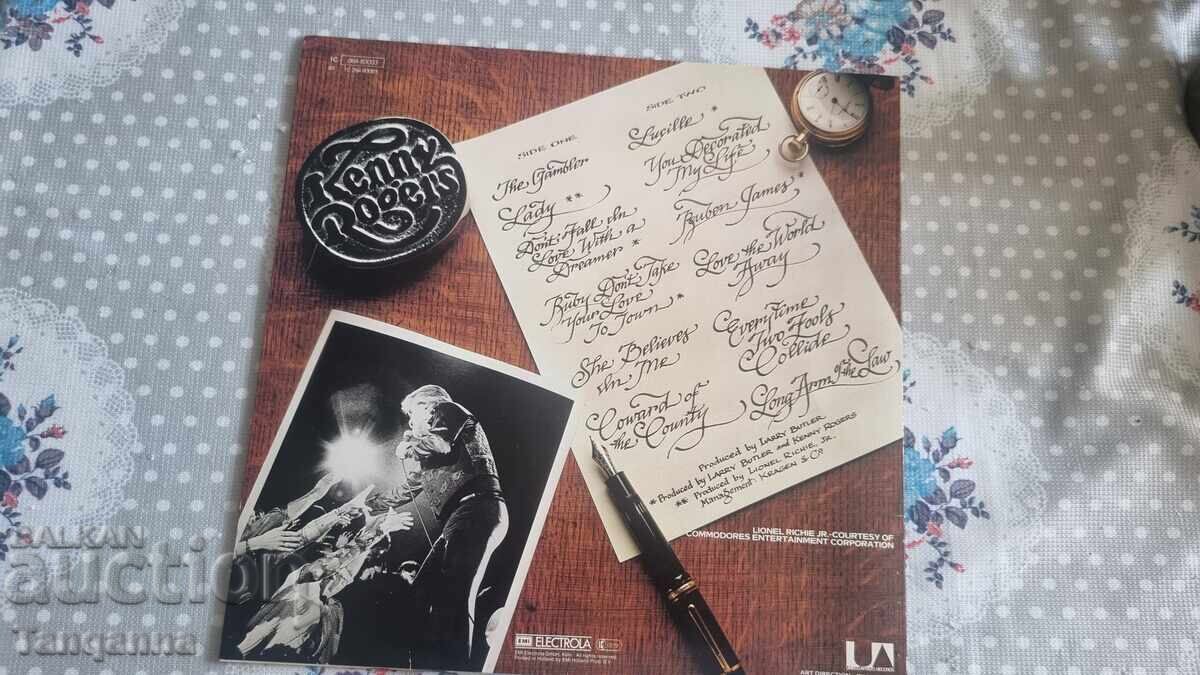 Kenny
Rogers
SIDE ONE
The Gambler
Lady **
Don't Fall In
Love With a
Dreamer *
Ruby Don't Take
Your Love
To Town *
She Believes
In Me
Coward of
the County
SIDE TWO
Lucille *
You Decorated
My Life
Reuben James *
Love the World
Away
Everytime
Two Fools
Collide
Long Arm of the Law
Produced by LARRY BUTLER
* Produced by LARRY BUTLER and KENNY ROGERS
** Produced by LIONEL RICHIE, JR.
Management: KRAGEN & CO
LIONEL RICHIE JR.-COURTESY OF
COMMODORES ENTERTAINMENT CORPORATION
EMI ELECTROLA
EMI Electrola GmbH, Köln · All rights reserved
Printed in Holland by EMI Holland
UA
ART DIRECTION
BALKAN
auction
Tanganna